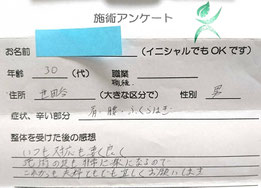 施術アンケート
お名前 (イニシャルでもOKです)
年齢 30 (代) 職業
住所 世田谷 (大きな区分で) 性別 男
症状、辛い部分 肩、腰、ふくらはぎ
整体を受けた後の感想
いつも対応も良く
施術の後も体が楽になるので
これからも夫婦ともども宜しくお願いします